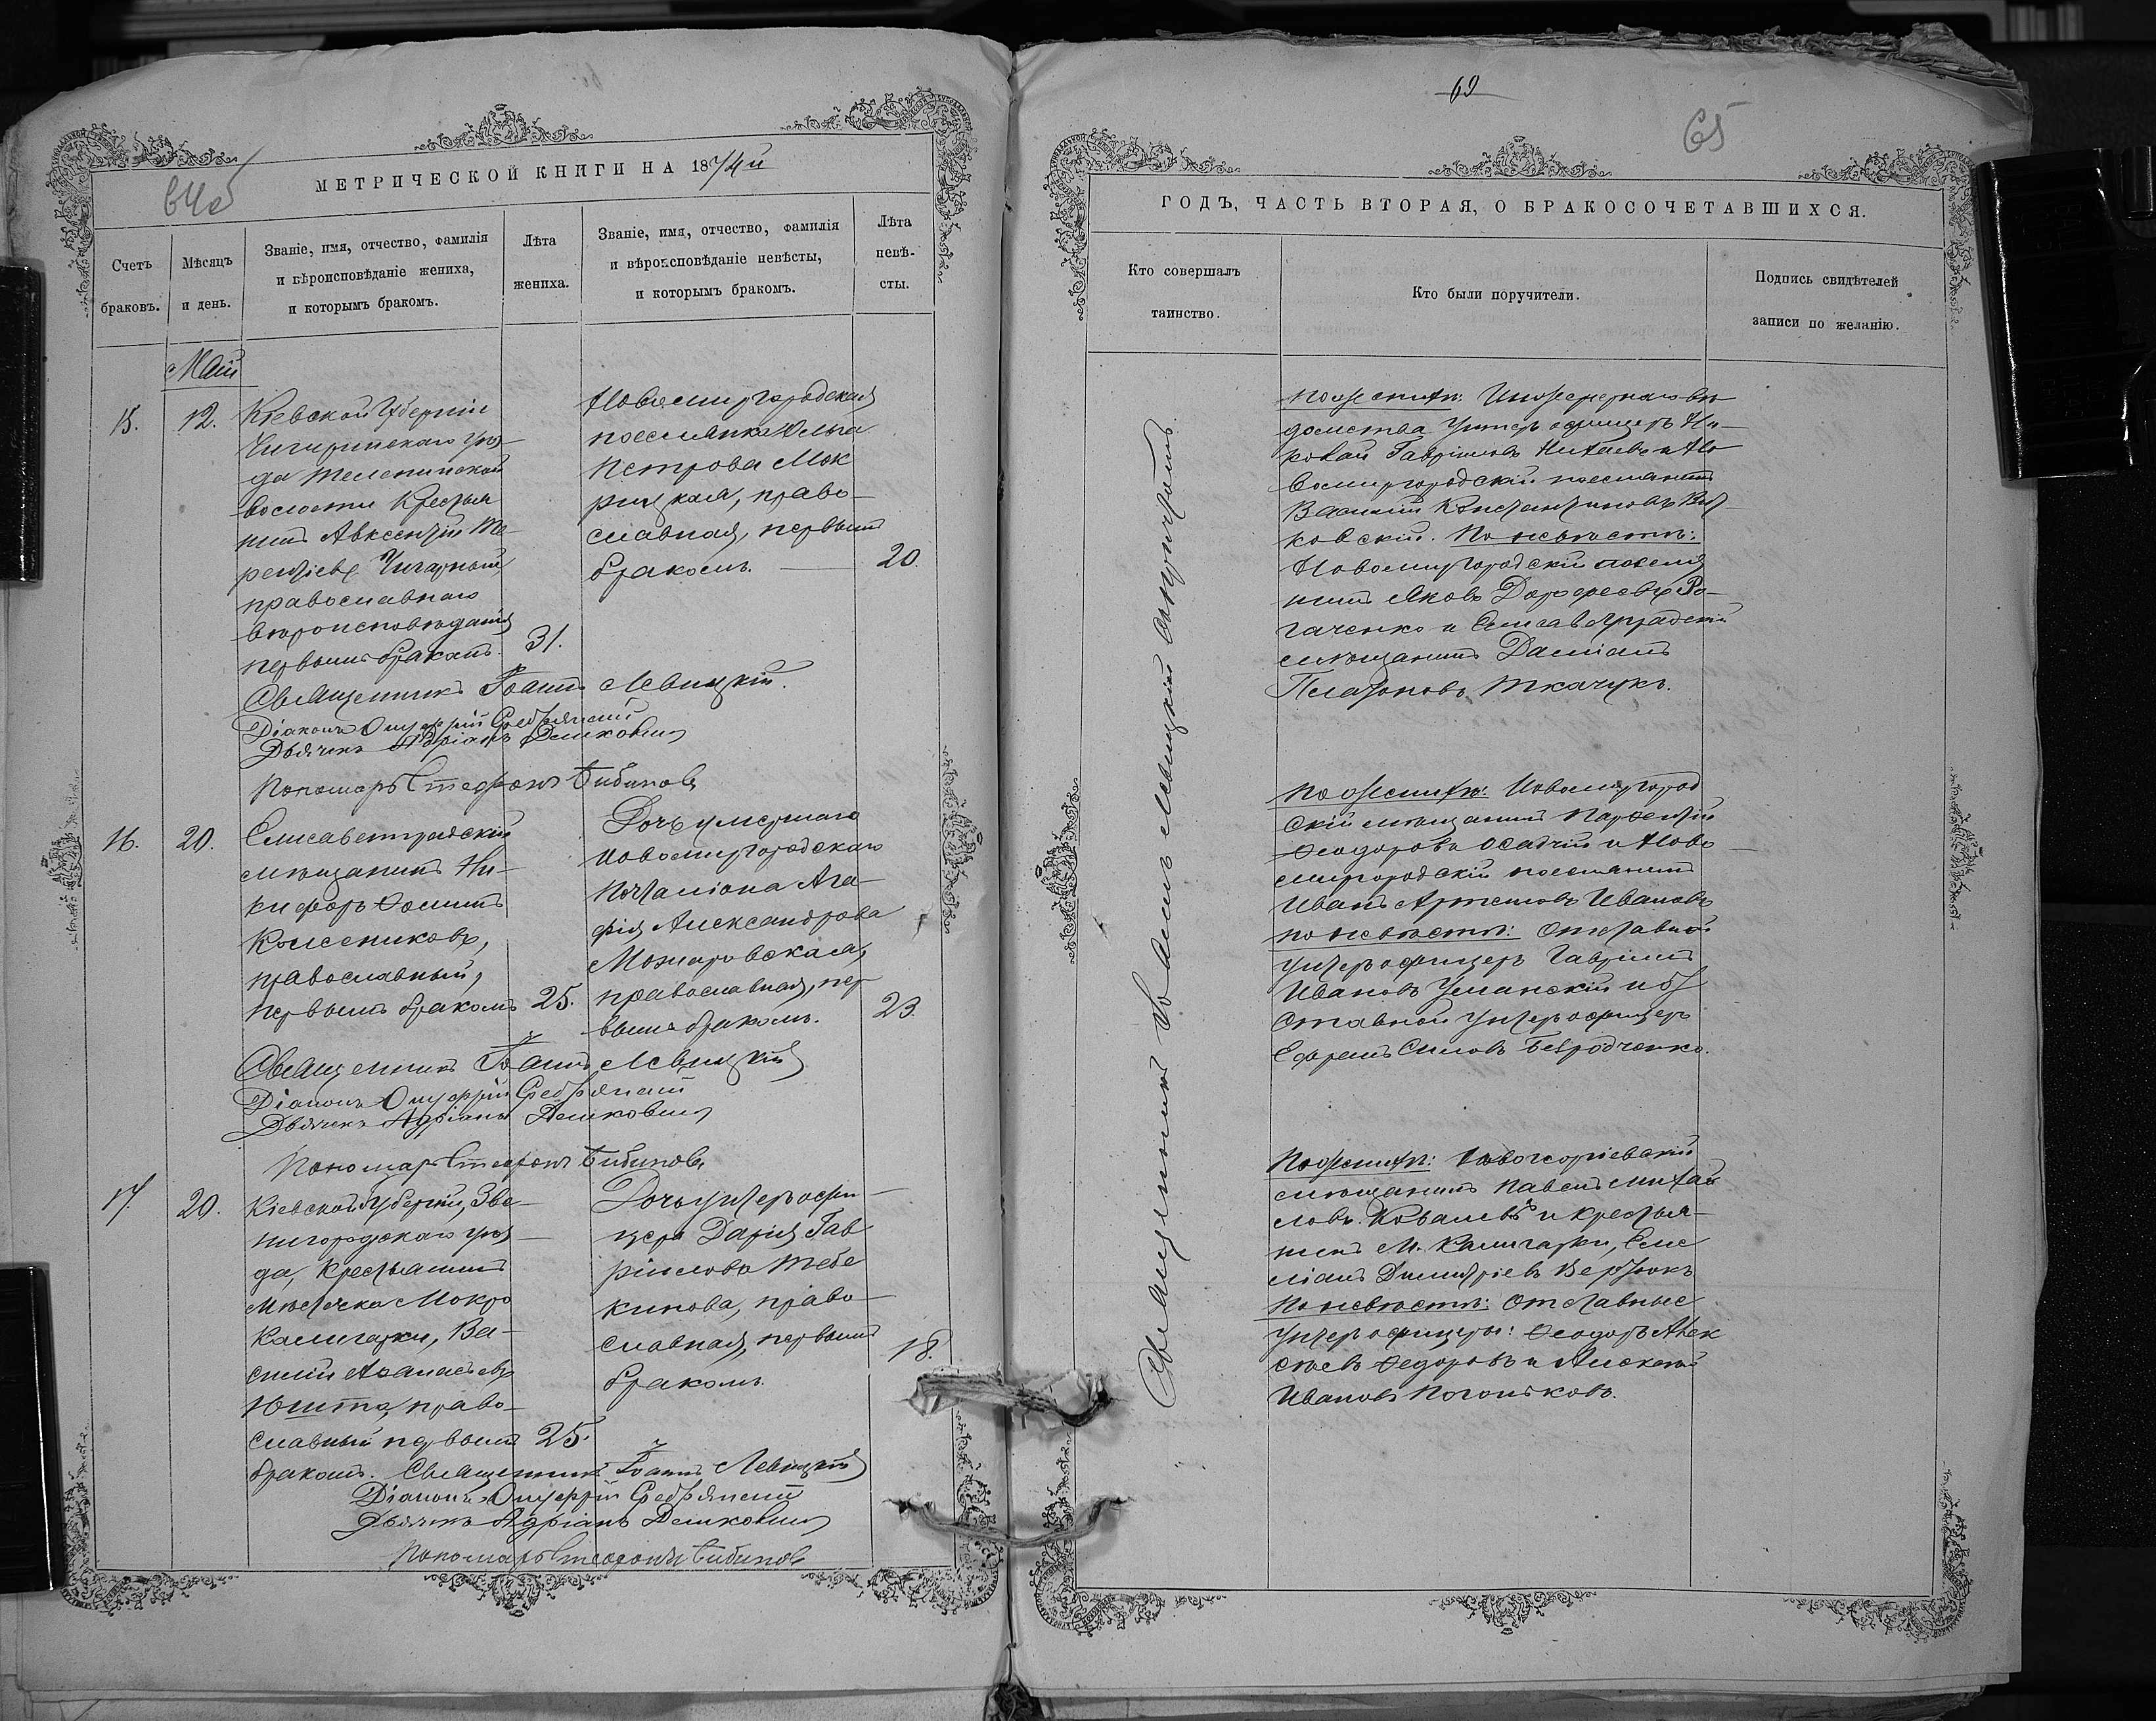 МЕТРИЧЕСКОЙ КНИГИ НА 1874й
Счетъ браковъ.
Мѣсяцъ и день.
Званіе, имя, отчество, фамилія
и вѣроисповѣданіе жениха,
и которымъ бракомъ.
Лѣта
жениха.
Званіе, имя, отчество, фамилія
и вѣроисповѣданіе невѣсты,
и которымъ бракомъ.
Лѣта
невѣ-
сты.
Май
15.
12.
Кіевской Губерніи
Чигиринскаго уѣз-
да Телепинской
волости Крестья
нинъ Авксентій Те-
рентіевъ
православнаго
вѣроисповѣданія
первымъ бракомъ.
31.
Новомиргородская
поселянка Юлія
Петрова Мок
рицкая, право-
славная, первымъ
бракомъ.
20.
Священникъ Іоаннъ Левицкій.
Діаконъ Онуфрій Сребрянскій
Дьячекъ Адріанъ
Пономарь Стефанъ Бибиковъ
16.
20.
Елисаветградскій
мѣщанинъ Ни-
кифоръ Ѳоминъ
Колесниковъ,
православный,
первымъ бракомъ
25.
Дочь умершаго
новомиргородскаго
почталіона Ага-
фія Александрова
православная, пер
вымъ бракомъ.
23.
Священникъ Іоаннъ Левицкій
Діаконъ Онуфрій Сребрянскій
Дьячекъ Адріанъ
Пономарь Стефанъ Бибиковъ
17.
20.
Кіевской губерніи, Зве-
нигородскаго уѣз-
да, крестьянинъ
мѣстечка Мокро
Калигорки, Ва-
силій Аѳанасьевъ
право-
славный первымъ
25.
бракомъ.
Дочь унтеръ офи-
цера Дарія Гав
ріилова Тебе
кинова, право-
славная, первымъ
бракомъ.
18.
Священникъ Іоаннъ Левицкій
Діаконъ Онуфрій Сребрянскій
Дьячекъ Адріанъ
Пономарь Стефанъ Бибиковъ
69
65
ГОДЪ, ЧАСТЬ ВТОРАЯ, О БРАКОСОЧЕТАВШИХСЯ.
Кто совершалъ
таинство.
Кто были поручители.
Подпись свидѣтелей
записи по желанію.
Священникъ Іоаннъ Левицкій
По женихѣ: Инженернаго вѣ
домства Унтеръ офицеръ Ни-
колай Гавріиловъ и Но
вомиргородскій поселянинъ
Василій Константиновъ
ковскій. По невѣстѣ:
Новомиргородскій поселя
нинъ Яковъ Дорофеевъ
и Елисаветградскій
мѣщанинъ Даміанъ
Платоновъ Ткачукъ.
По женихѣ: Новомиргород
скій мѣщанинъ Парфентій
Ѳеодоровъ Осадчій и Ново-
миргородскій поселянинъ
Иванъ Артемовъ Ивановъ
по невѣстѣ: Отставной
унтеръ офицеръ Гавріилъ
Ивановъ Уманскій и от
ставной унтеръ офицеръ
Ефремъ Силовъ
По женихѣ: Новогеоргіевскій
мѣщанинъ Павелъ Михай
ловъ Ковалевъ и крестья-
нинъ М. Калигорки, Еме
ліанъ Димитріевъ
По невѣстѣ: Отставные
унтеръ офицеры: Ѳеодоръ Алек
сѣевъ Ѳедоровъ и Алексѣй
Ивановъ